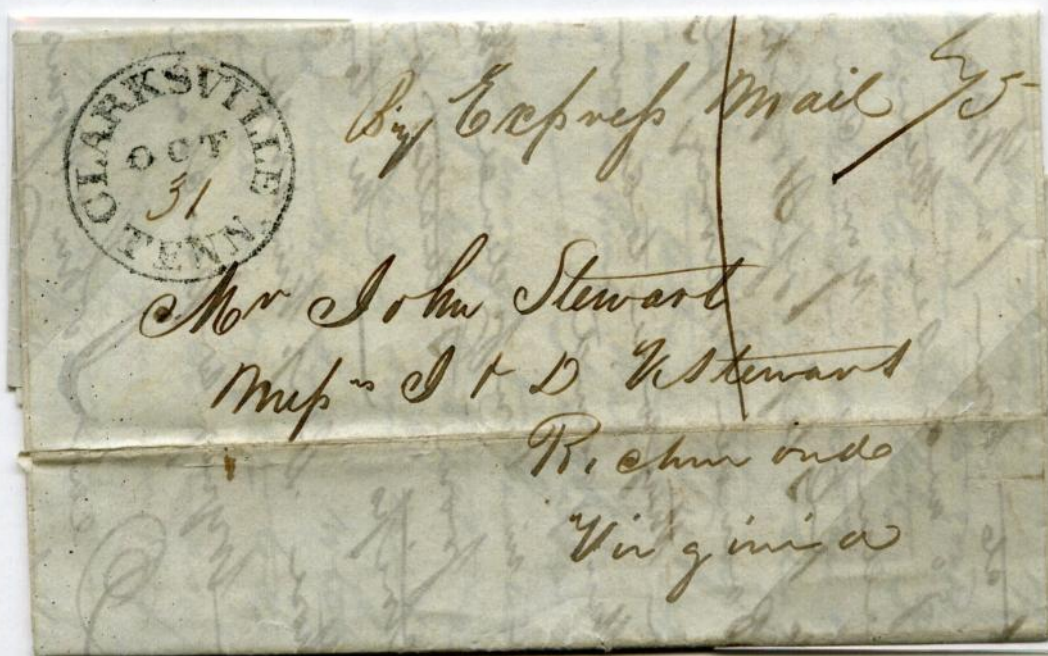 CLARKSVILLE TENN.
OCT
31
By Express Mail 75
Mr John Stewart
Messrs J & D Stewart
Richmond
Virginia